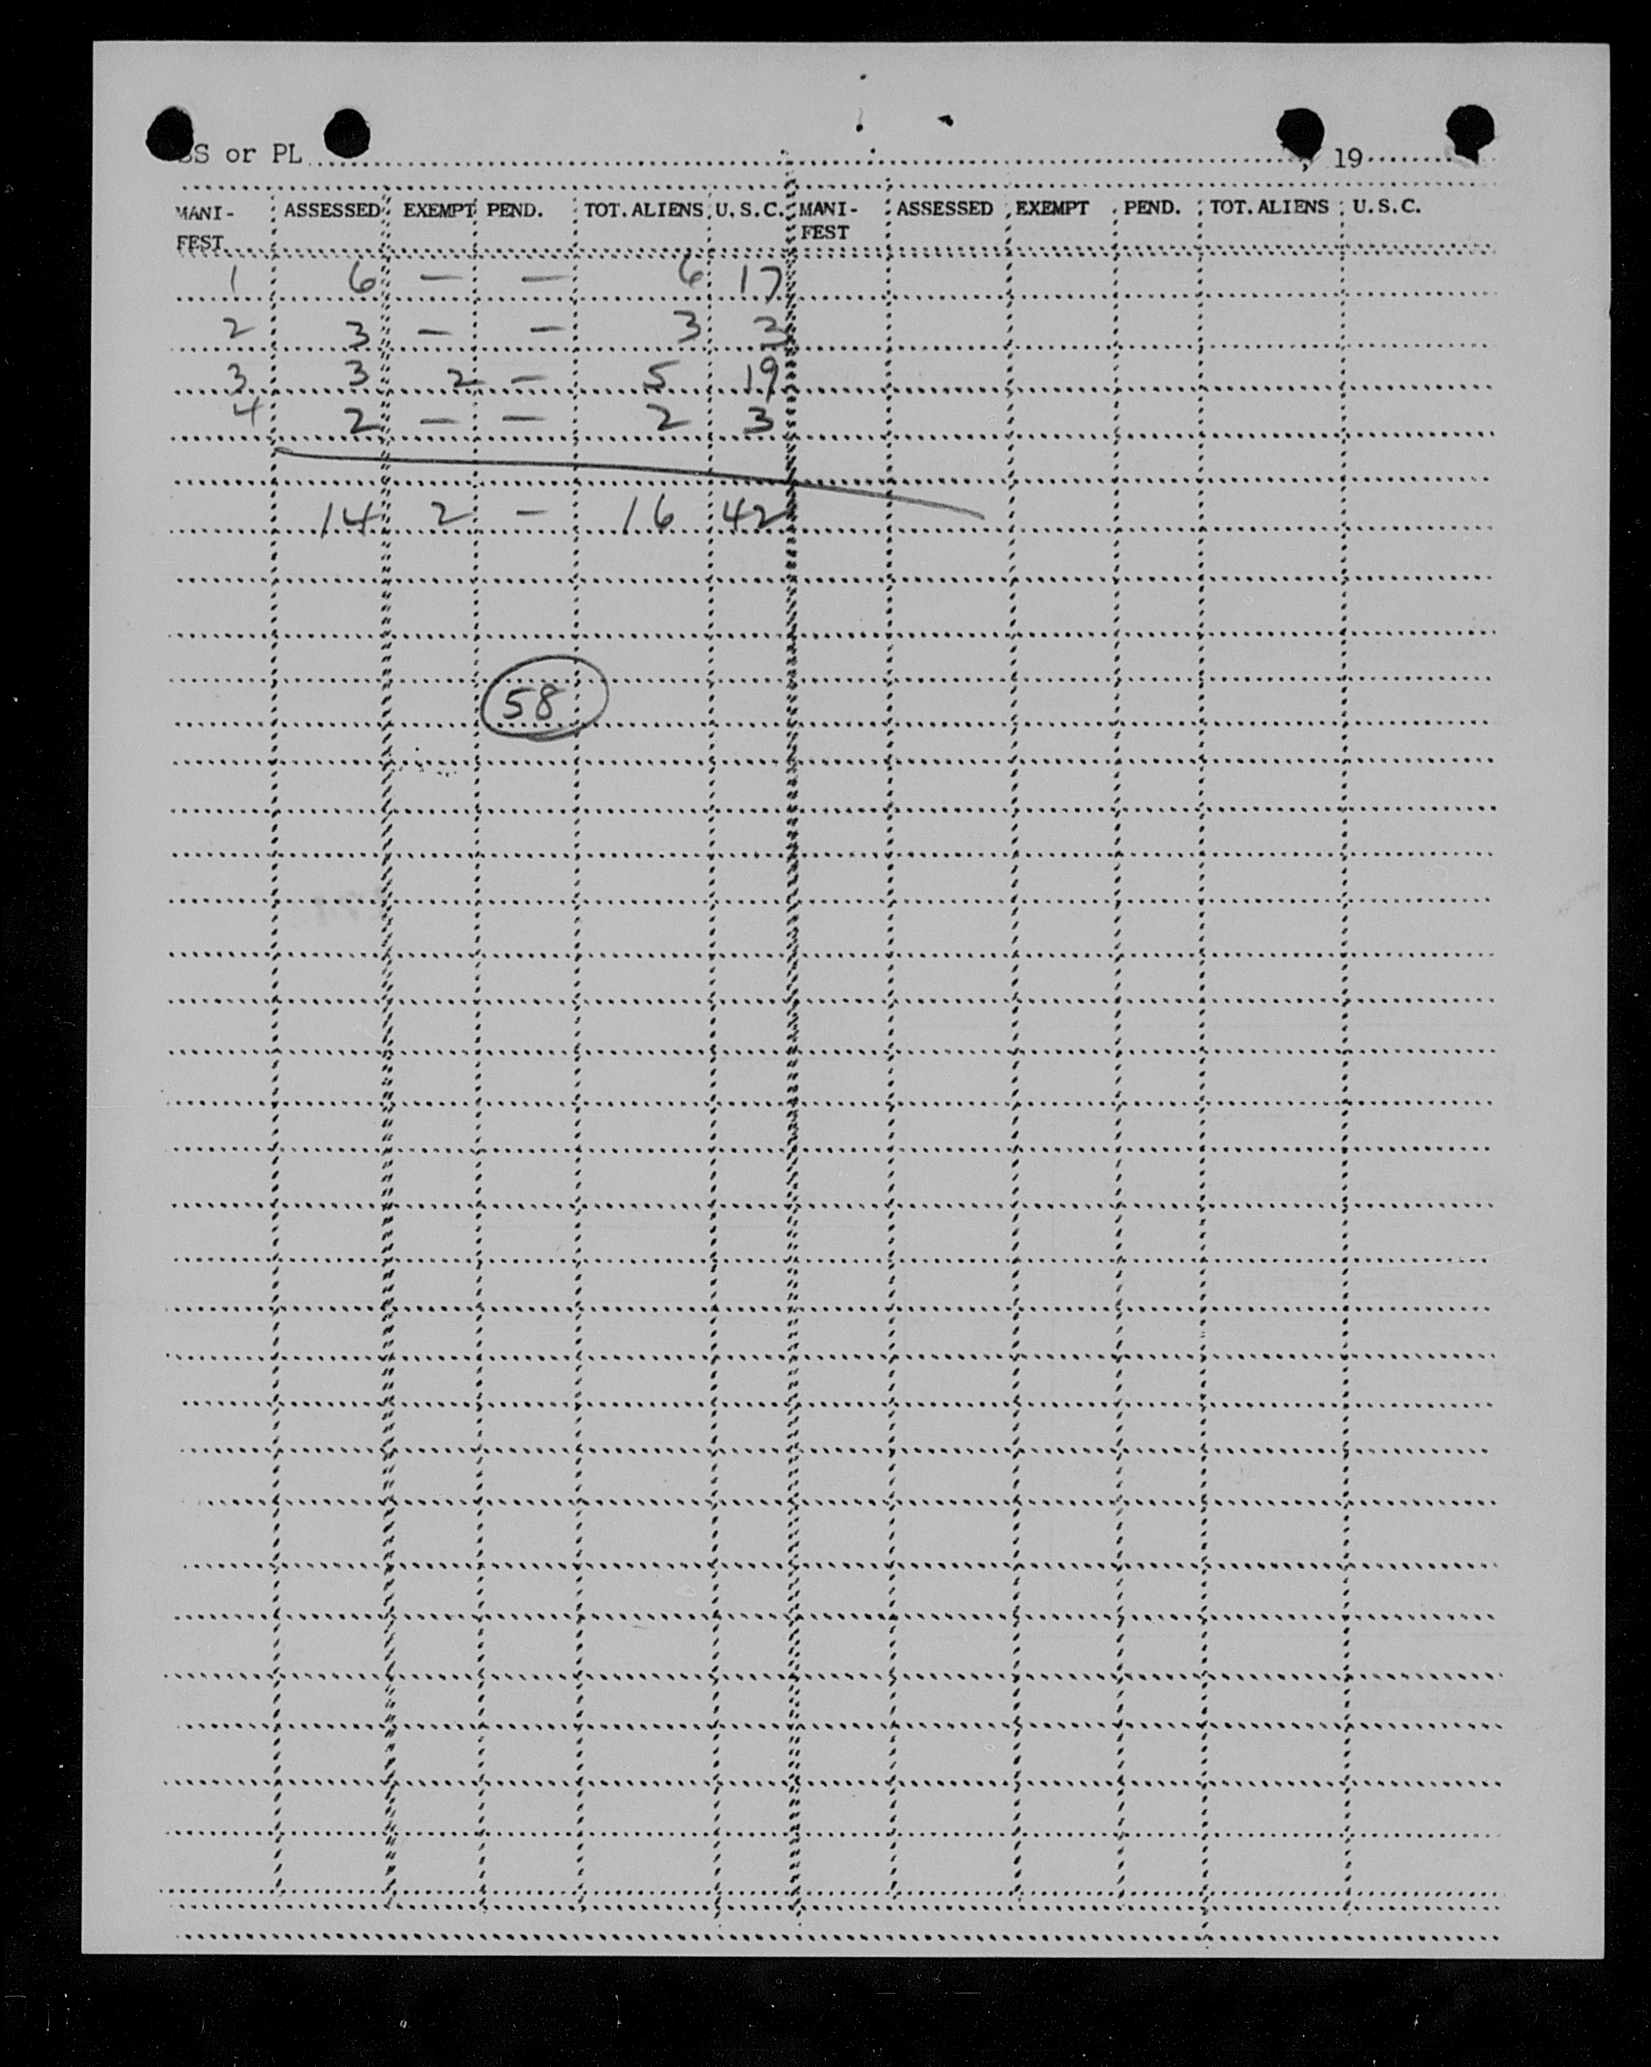 SS or PL , 19
MANI-FEST ASSESSED EXEMPT PEND. TOT. ALIENS U.S.C. MANI-FEST ASSESSED EXEMPT PEND. TOT. ALIENS U.S.C.
1 6 — — 6 17
2 3 — — 3 3
3 3 2 — 5 19
4 2 — — 2 3
14 2 — 16 42
58